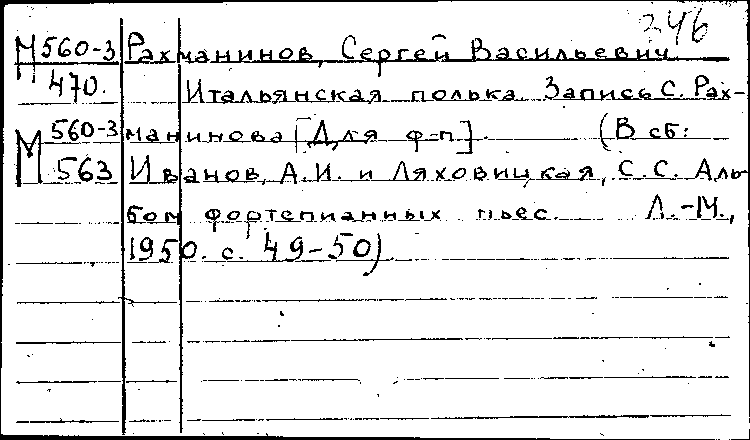 246
М 560-3 Рахманинов, Сергей Васильевич
470. Итальянская полька. Запись С. Рах-
М 560-3 манинова [Для ф-п]. (В сб:
563 Иванов, А.И. и Ляховицкая, С.С. Аль-
бом фортепианных пьес. Л.-М.,
1950. с. 49-50)